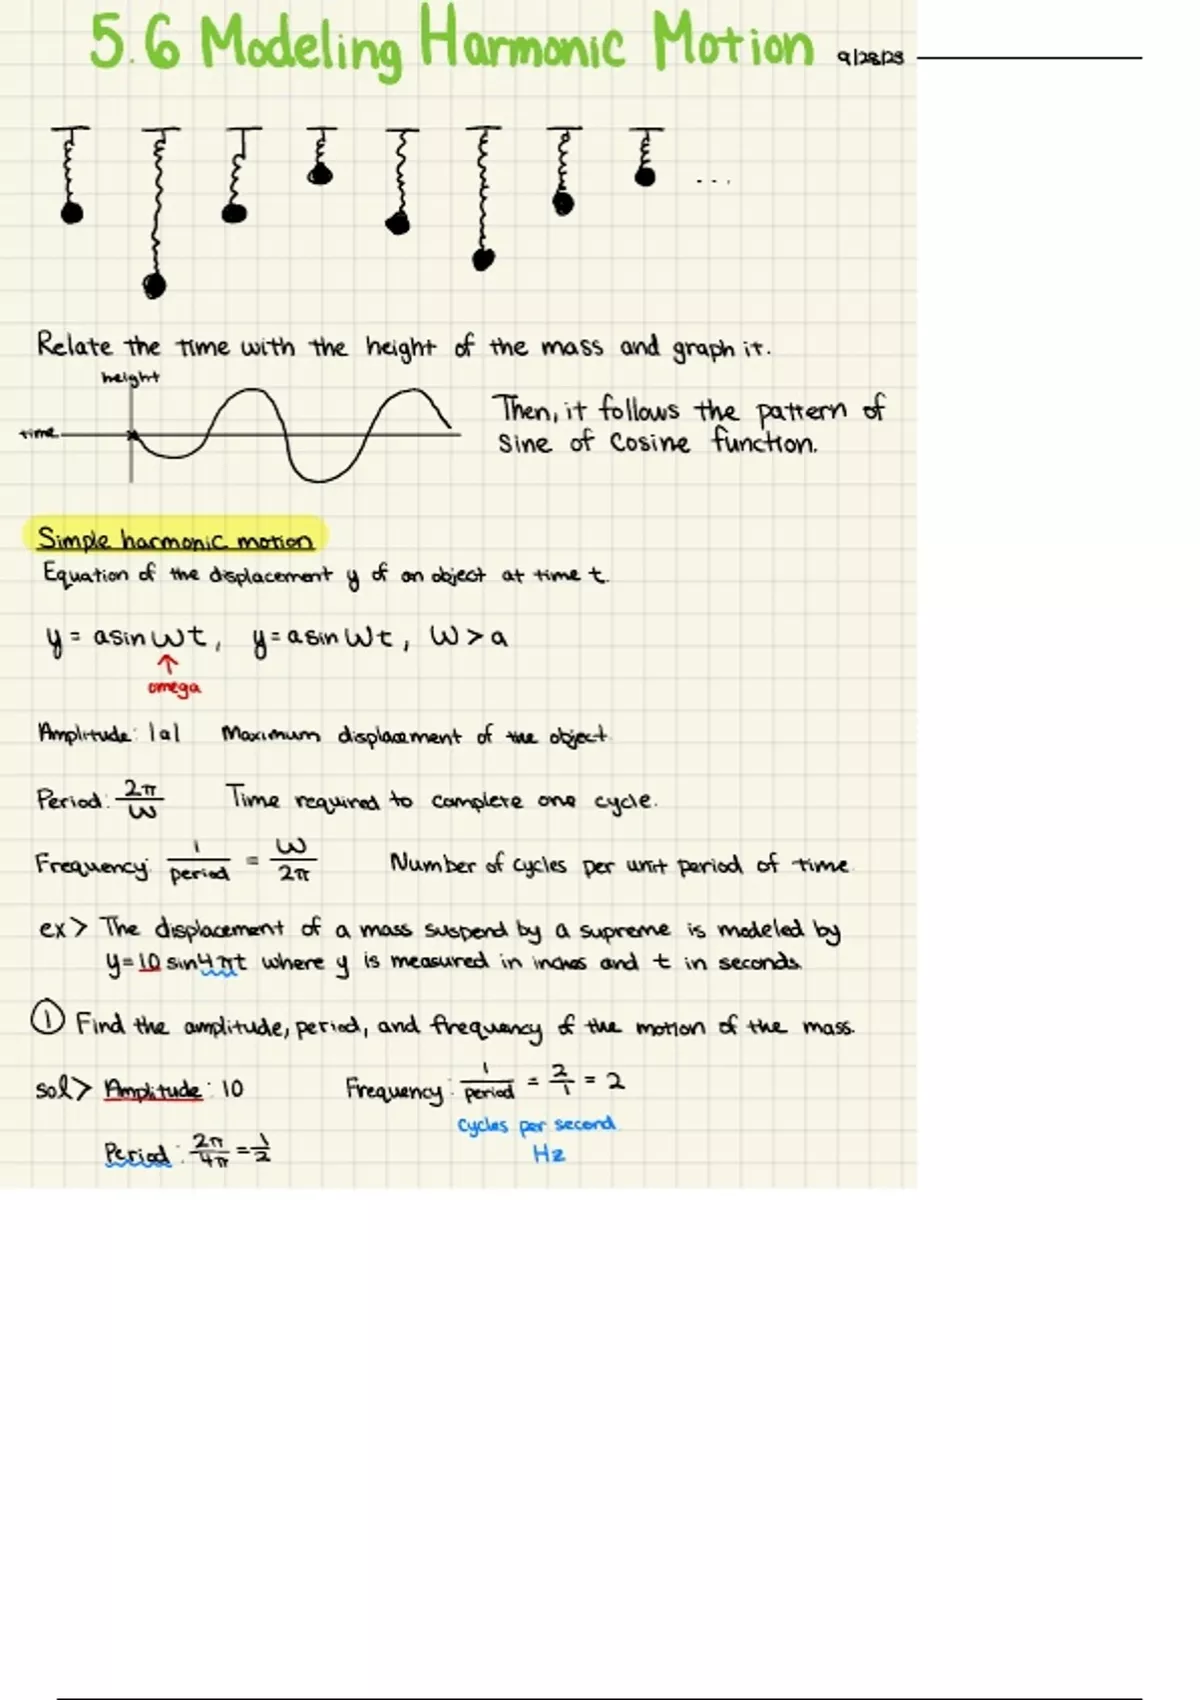 5.6 Modeling Harmonic Motion 9/28/23
...
Relate the time with the height of the mass and graph it.
height
time
Then, it follows the pattern of
sine of cosine function.
Simple harmonic motion
Equation of the displacement y of an object at time t.
y = asin ωt, y = asin ωt, ω > a
↑
omega
Amplitude: |a| Maximum displacement of the object
Period: 2π/ω Time required to complete one cycle.
Frequency: 1/period = ω/2π Number of cycles per unit period of time
ex> The displacement of a mass suspend by a supreme is modeled by
y=10 sin4πt where y is measured in inches and t in seconds.
① Find the amplitude, period, and frequency of the motion of the mass.
sol> Amplitude: 10 Frequency: 1/period = 2/1 = 2
cycles per second
Period: 2π/4π = 1/2 Hz